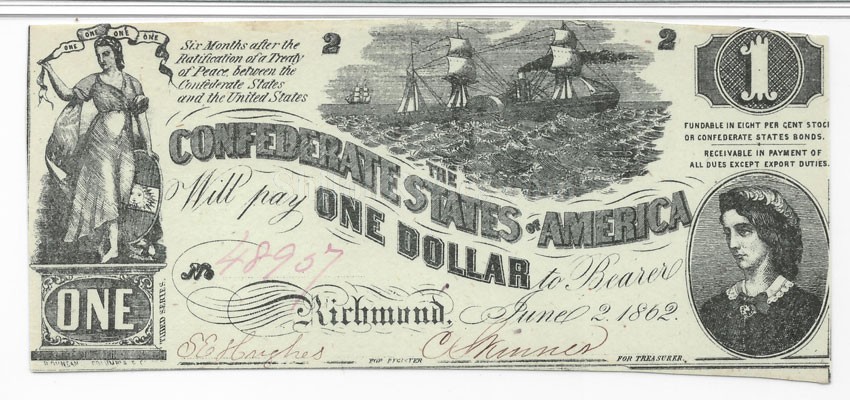 ONE ONE ONE ONE
Six Months after the
Ratification of a Treaty
of Peace between the
Confederate States
and the United States
2
2
1
FUNDABLE IN EIGHT PER CENT STOCK
OR CONFEDERATE STATES BONDS.
RECEIVABLE IN PAYMENT OF
ALL DUES EXCEPT EXPORT DUTIES.
THE
CONFEDERATE STATES OF AMERICA
Will pay ONE DOLLAR to Bearer
No 48957
Richmond, June 2, 1862.
ONE
THIRD SERIES.
S E Hughes
FOR REGISTER
C Skinner
FOR TREASURER.
B. DUNCAN COLUMBIA S.C.